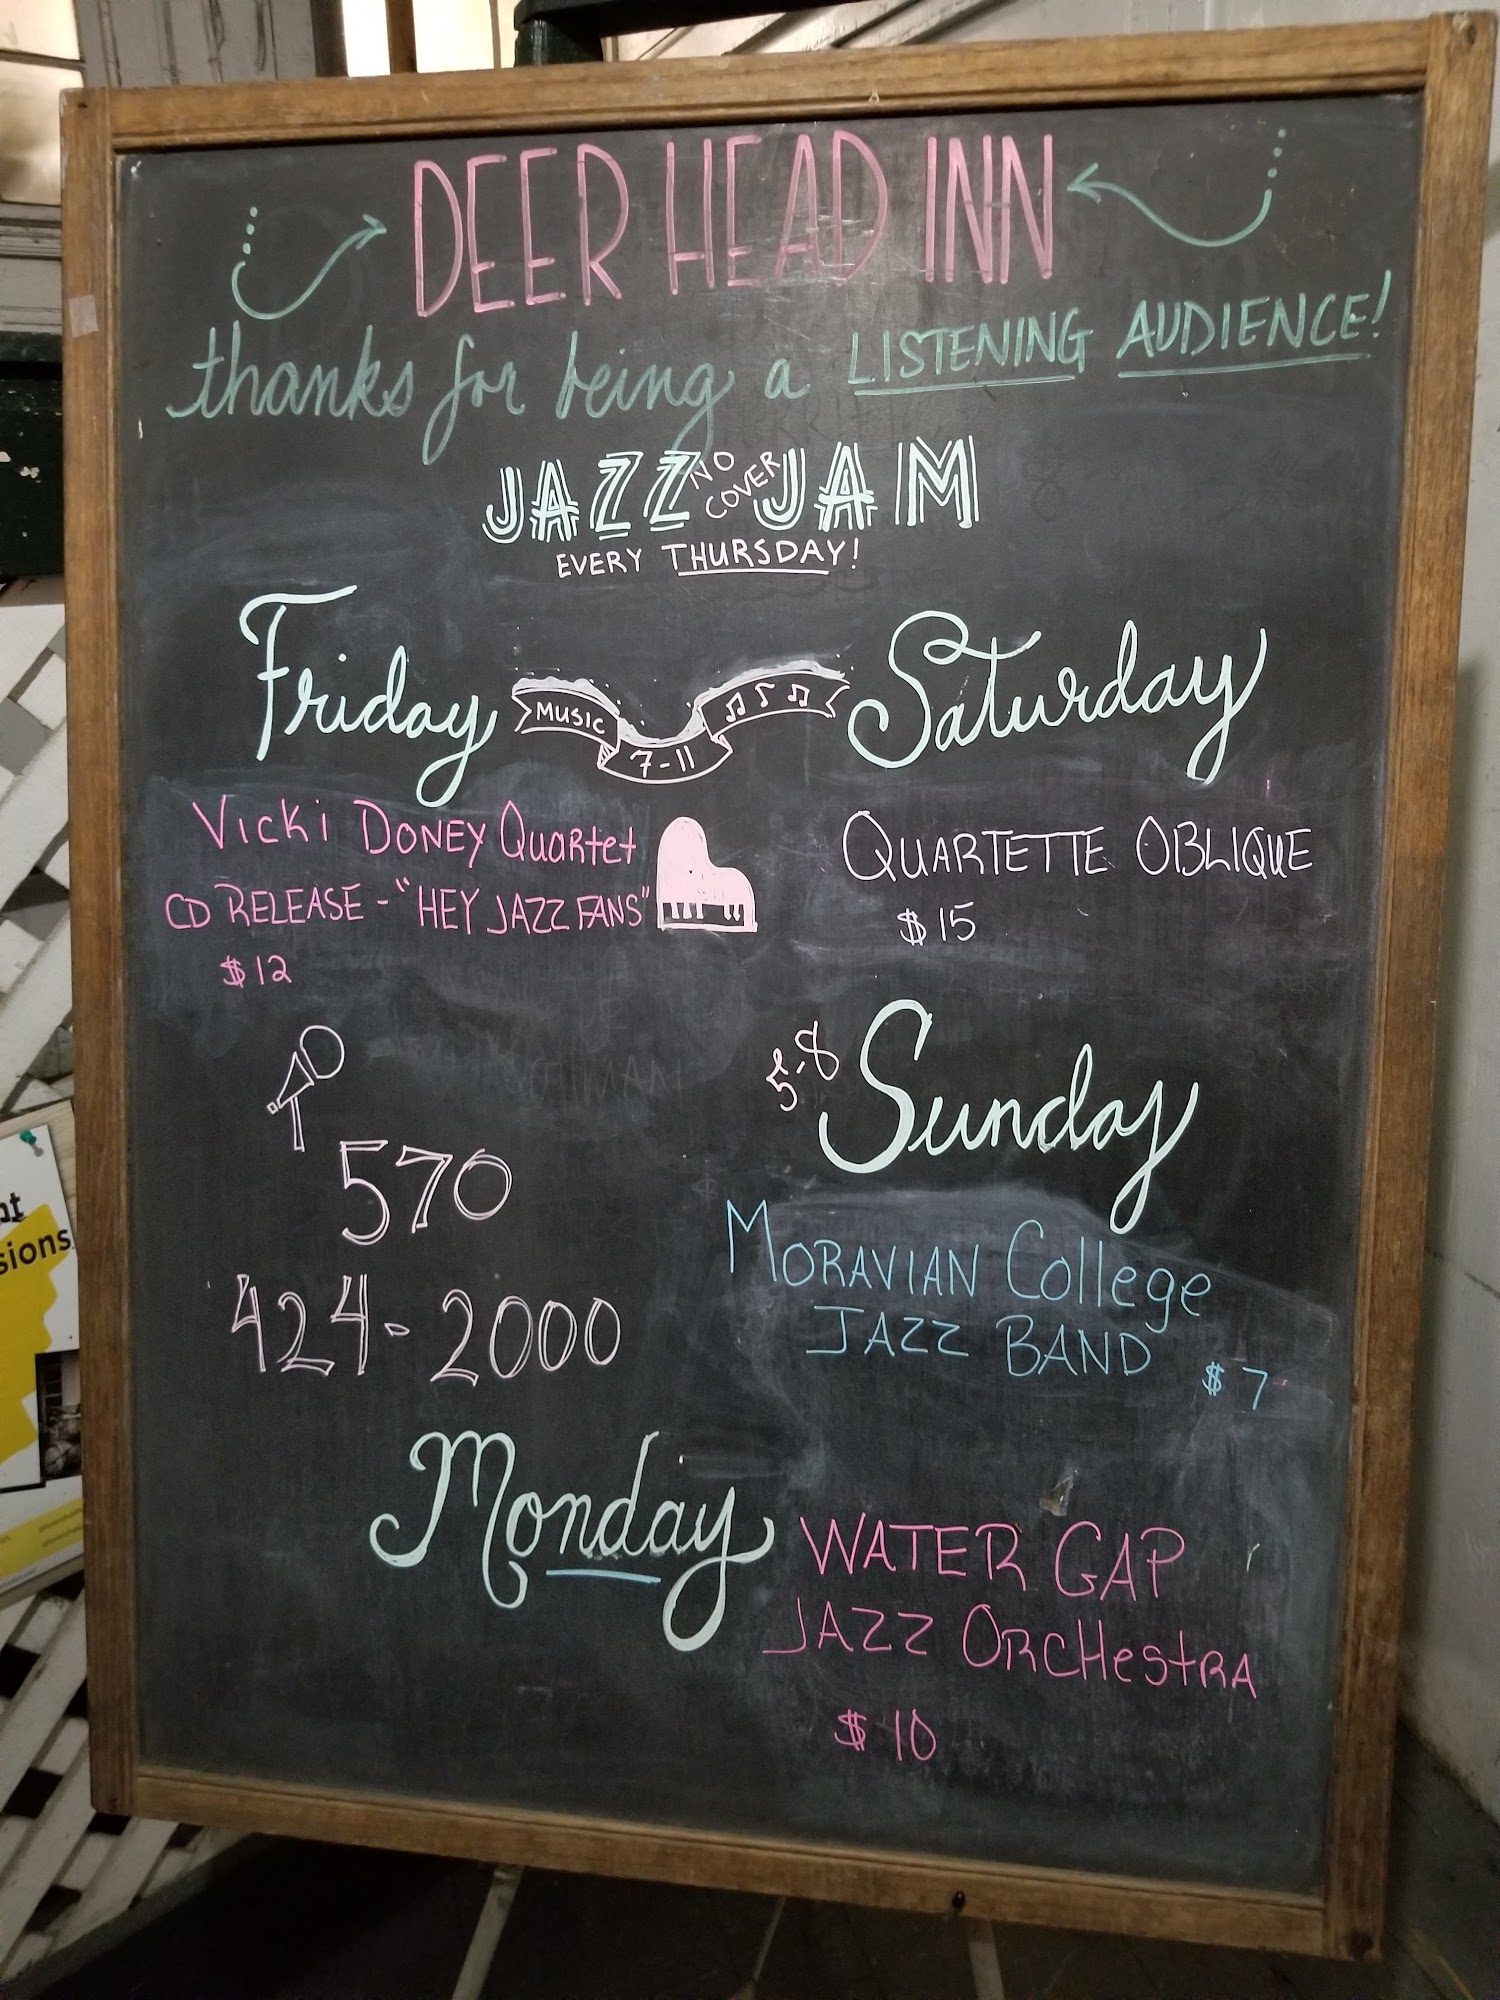 DEER HEAD INN
thanks for being a LISTENING AUDIENCE!
JAZZ NO COVER JAM
EVERY THURSDAY!
Friday
MUSIC
7-11
Saturday
Vicki DONEY Quartet
CD RELEASE - "HEY JAZZ FANS"
$12
QUARTETTE OBLIQUE
$15
5-8
Sunday
570
424-2000
MORAVIAN College
JAZZ BAND
$7
Monday
WATER GAP
JAZZ ORCHESTRA
$10
sions